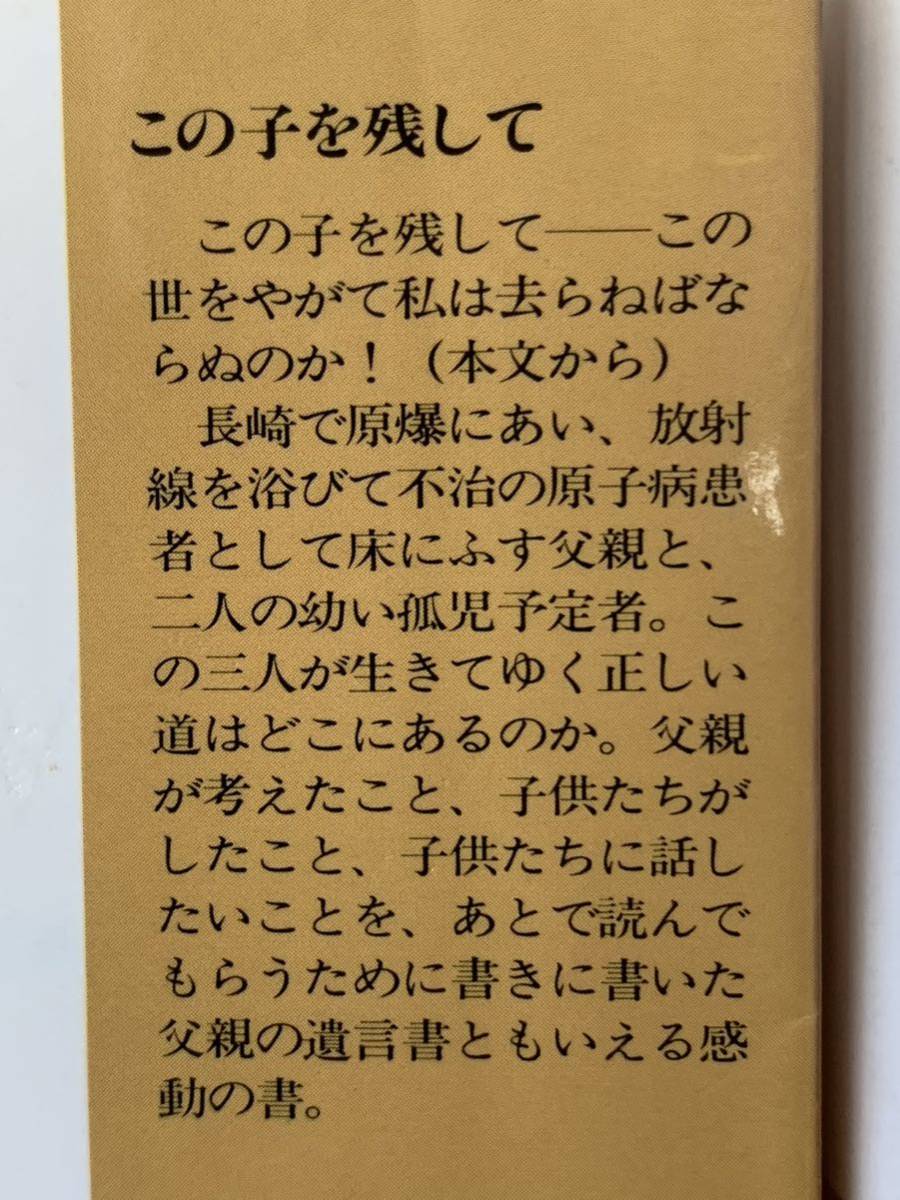 この子を残して
この子を残して――この
世をやがて私は去らねばな
らぬのか！（本文から）
長崎で原爆にあい、放射
線を浴びて不治の原子病患
者として床にふす父親と、
二人の幼い孤児予定者。こ
の三人が生きてゆく正しい
道はどこにあるのか。父親
が考えたこと、子供たちが
したこと、子供たちに話し
たいことを、あとで読んで
もらうために書きに書いた
父親の遺言書ともいえる感
動の書。